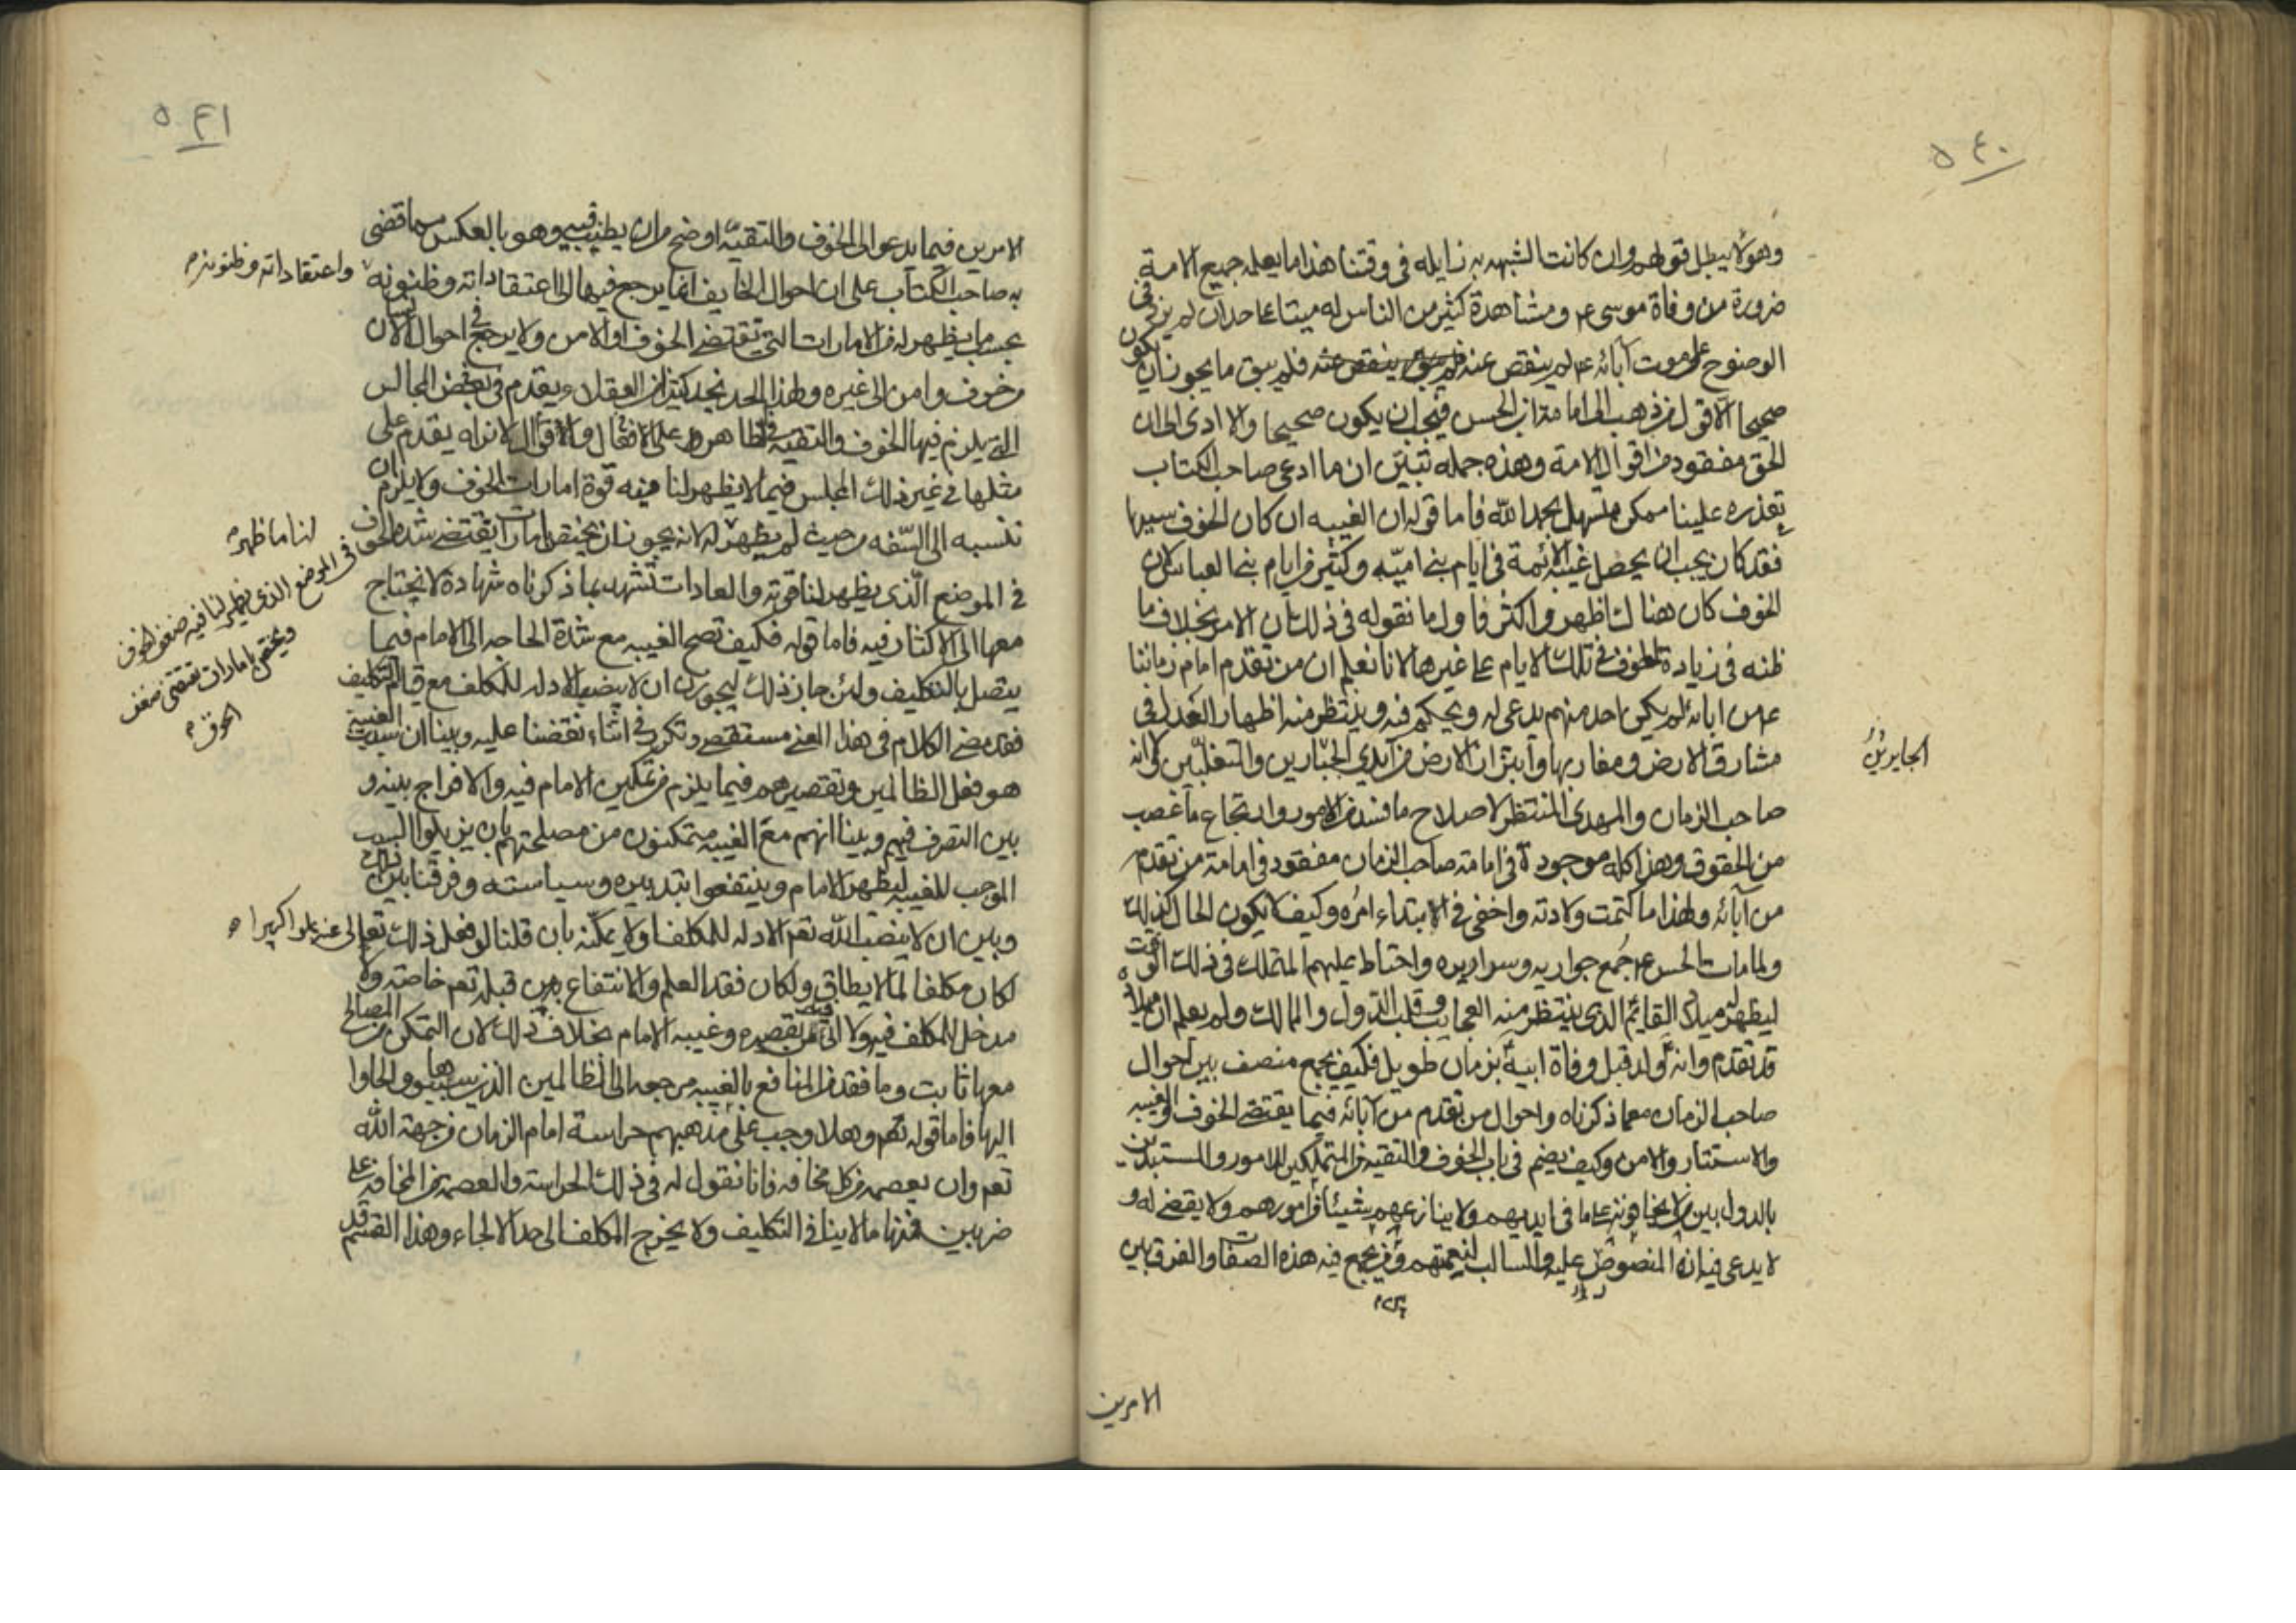 ٥٤٠
وهؤلا يبطل قولهم وان كانت الشبهه به زايله فى وقتنا هذا ما يعلمه جميع الامة
ضرورة من وفاة موسى ع م ومشاهدة كثير من الناس له ميتا على حد ان لم يزد فى
الوضوح على موت آبائه ع م لم ينقص عنه فلم يبق ما يجوز ان يكون
صحيحا الا قول من ذهب الى امامة ابن الحسن فيجب ان يكون صحيحا والا ادى الى ان
الحق مفقود من اقوال الامة وهذه جمله تبيّن ان ما ادعى صاحب الكتاب
تعذره علينا ممكن متسهل بحمد الله فاما قوله ان الغيبه ان كان الخوف سببها
فقد كان يجب ان يحصل غيبة الائمة فى ايام بنى اميّه وكثير من ايام بنى العباس لان
الخوف كان هناك اظهر واكثر فاول ما نقوله فى ذلك ان الامر بخلاف ما
ظنه فى زيادة الخوف فى تلك الايام على غيرها لانا نعلم ان من تقدم امام زماننا
ع م من ابائه لم يكن احد منهم يدعى له ويحكم فيه وينتظر منه اظهار العدل فى
مشارق الارض ومغاربها وابتزاز الارض من آيدي الجبّارين والمتغلّبين لانه
الجايرين
صاحب الزمان والمهدى المنتظر لاصلاح ما فسد من الامور وارتجاع ما غصب
من الحقوق وهذا كله موجود فى امامة صاحب الزمان مفقود فى امامة من تقدم
من آبائه ولهذا ما كتمت ولادته واخفى فى الابتداء امره وكيف لا يكون الحال كذلك
ولما مات الحسن ع م جُمع جواريه وسراريه واحتاط عليهم المتملك فى ذلك الوقت
ليظهر له ميلاد القايم الذى ينتظر منه العجايب وقلب الدول والممالك ولم يعلم ان ميلاده
قد تقدم وانه وُلد قبل وفاة ابيه بزمان طويل فكيف يجمع منصف بين احوال
صاحب الزمان مع ما ذكرناه واحوال من تقدم من آبائه فيما يقتضى الخوف والغيبه
والاستتار والامن وكيف يضم فى باب الخوف والتقيه من المتملكين للامور والمستبدين
بالدول بين من لا يخافونه على ما فى ايديهم ولا ينازعهم شيئا من امورهم ولا يقضى له و
لا يدعى فيه انه المنصوص عليه والسالب لنعمتهم ومن يجمع فيه هذه الصفات والفرق بين
الامرين
٥٤١
الامرين فيما يدعو الى الخوف والتقيّه اوضح من ان يطنب فيه وهو بالعكس مما قضى
به صاحب الكتاب على ان احوال الخايف انما يرجع فيها الى اعتقاداته وظنونه
واعتقاداته وظنونه م
بحسب ما يظهر له من الامارات التي تقتضى الخوف او الامن ولا يرجع فى احوال الانسان
من خوف وامن الى غيره ولهذا الحد نجد كثيرا من العقلاء يقدم فى بعض المجالس
التي يلزم فيها الخوف والتقيه فى الظاهر على الافعال والاقوال لا نراه يقدم على
مثلها فى غير ذلك المجلس فيما لا يظهر لنا فيه قوة امارات الخوف ولا يلزم ان
ننسبه الى السّفه من حيث لم يظهر له لانه يجوز ان يختص بامارات يقتضى شدة الخوف
لنا ما ظهر م
فى الموضع الذى يظهر لنا فيه ضعف الخوف
ويختص بامارات تقتضى ضعف
الخوف م
فى الموضع الّذى يظهر لنا قوته والعادات تشهد بما ذكرناه شهادة لا نحتاج
معها الى الاكثار فيه فاما قوله فكيف تصح الغيبه مع شدة الحاجه الى الامام فيما
يتصل بالتكليف ولئن جاز ذلك ليجوزن ان لا ينصب الادله للمكلف مع قيام التكليف
فقد مضى الكلام فى هذا المعنى مستقصى وتكرر فى اثناء نقضنا عليه وبينا ان سبب الغيبة
هو فعل الظالمين وتقصيرهم فيما يلزم من تمكين الامام فيه والافراج بينه و
بين التصرف فيهم وبينا انهم مع الغيبه متمكنون من مصلحتهم بان يزيلوا السبب
الموجب للغيبه ليظهر الامام وينتفعوا بتدبيره وسياسته وفرقنا بين ذلك
وبين ان لا ينصب الله تعم الادله للمكلف او لا يمكنه بان قلنا لو فعل ذلك تعالى عنه علوا كبيرا ٥
لكان مكلفا لما لا يطاق ولكان فقد العلم والانتفاع به من قبله تعم خاصة ولا
مدخل للمكلف فيه ولا اتى فيه من تقصيره وغيبه الامام بخلاف ذلك لان التمكن من المصالح
معها ثابت وما فقد من المنافع بالغيبه مرجعه الى الظالمين الذين سببوها والجاوا
اليها فاما قوله لهم وهلا وجب على مذهبهم حراسة امام الزمان من جهة الله
تعم وان يعصمه من كل مخافه فانا نقول له فى ذلك الحراسة والعصمة من المخافه على
ضربين فمنها ما لا ينافى التكليف ولا يخرج المكلف الى حد الالجاء وهذا القسم قد